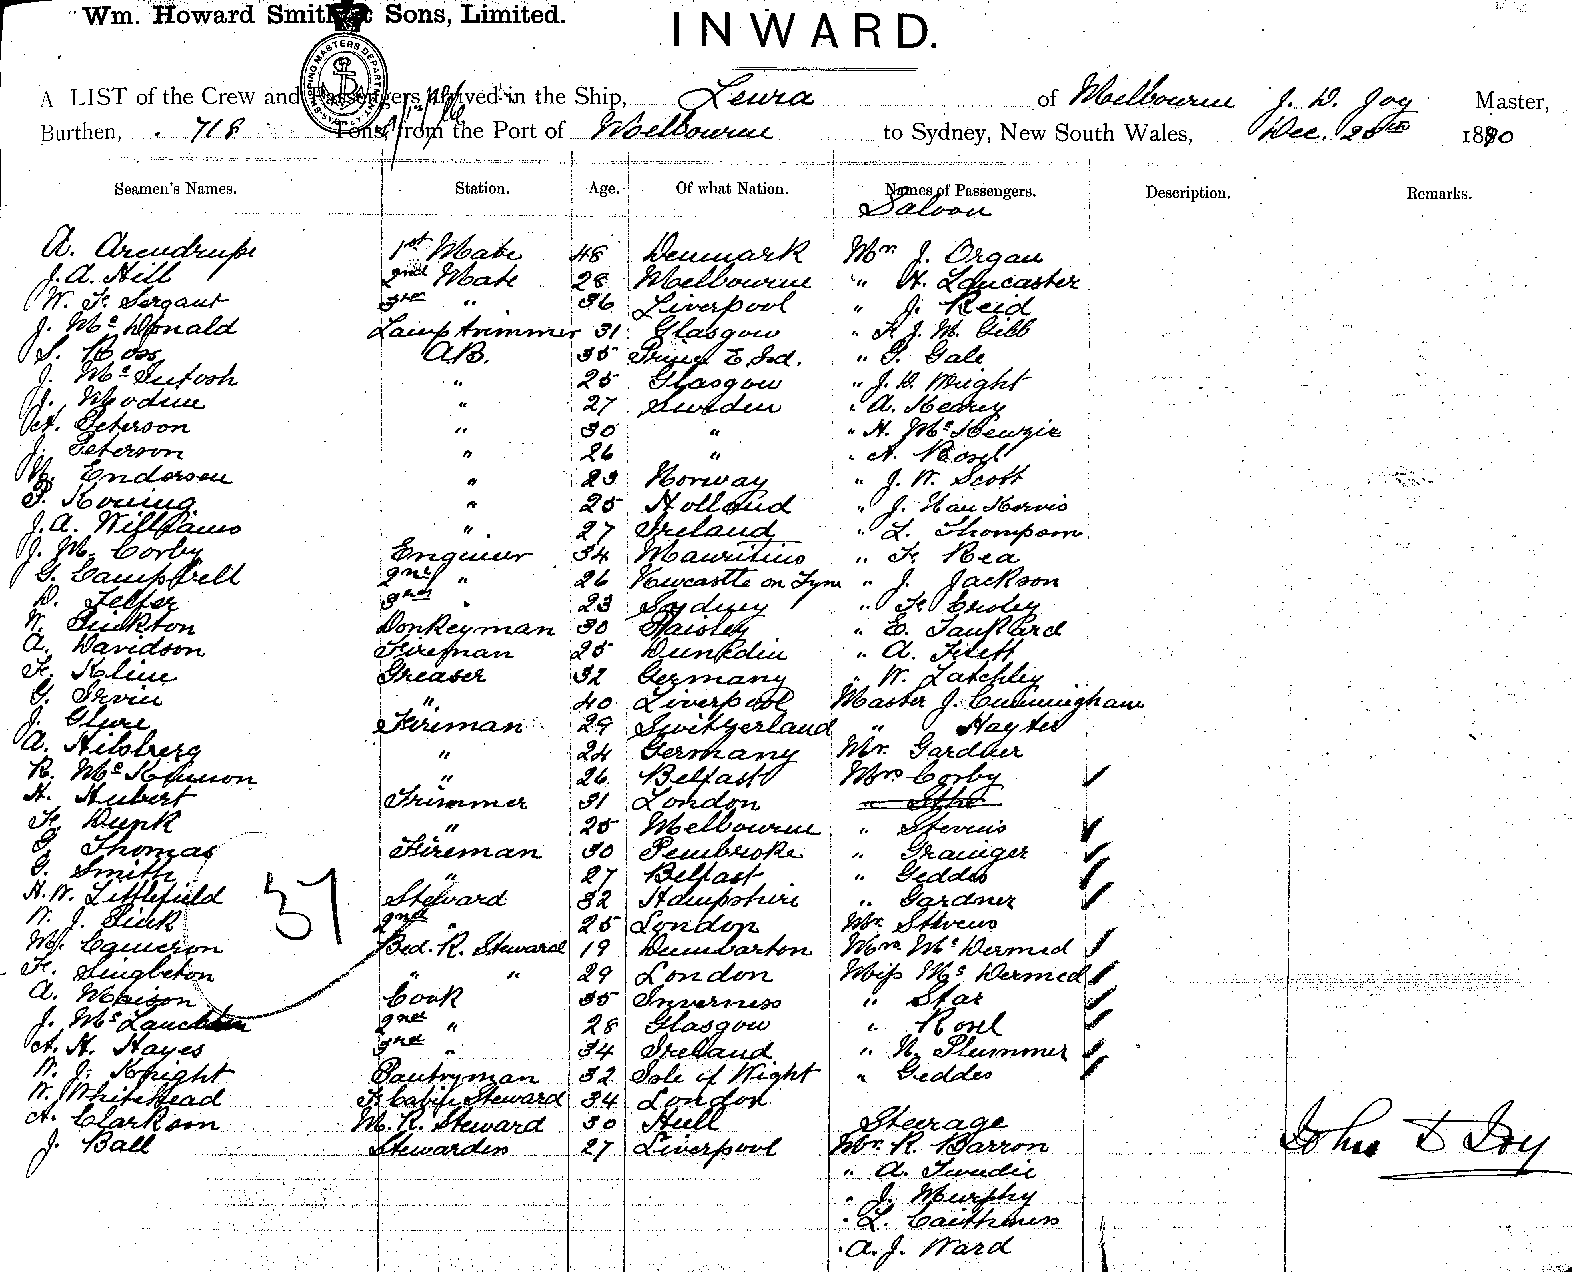 Wm. Howard Smith & Sons, Limited.
INWARD.
A LIST of the Crew and Passengers arrived in the Ship, Leura of Melbourne J. D. Joy Master,
Burthen, 718 Tons, from the Port of Melbourne to Sydney, New South Wales, Dec. 1890
Seamen's Names. Station. Age. Of what Nation. Names of Passengers. Description. Remarks.
Saloon
A. Arendrupe 1st Mate 48 Denmark Mr. J. Organ
J. A. Hill 2nd Mate 28 Melbourne " H. Lancaster
W. F. Sergant 3rd " 36 Liverpool " J. Reid
J. McDonald Lamp trimmer 31 Glasgow " F. J. M. Gibb
S. Ross A.B. 35 " G. Gale
J. McIntosh " 25 Glasgow " J. D. Wright
J. Modine " 27 Sweden " A. Kearey
A. Peterson " 30 " " H. McKenzie
J. Peterson " 26 " " A. Rosel
N. Enderson " 23 Norway " J. W. Scott
P. Koning " 25 Holland " J. Van
J. A. Williams " 27 Ireland " L. Thompson
J. M. Corby Engineer 34 Mauritius " F. Rea
G. Campbell 2nd " 26 Newcastle on Tyne " J. Jackson
D. Telfer 3rd " 23 Sydney " F. Crosley
W. Donkeyman 30 Paisley " E. Tankard
A. Davidson Fireman 25 Dunedin " A. Flett
F. Kline Greaser 32 Germany " W. Latchley
G. Irvin " 40 Liverpool Master J. Cunningham
J. Glure Fireman 29 Switzerland " Hayter
A. Hilsberg " 24 Germany Mr. Gardner
R. McKinnon " 26 Belfast Mrs Corby
H. Hubert Trimmer 31 London "
F. Dunk " 25 Melbourne " Stevens
G. Thomas Fireman 30 Pembroke " Grainger
G. Smith " 27 Belfast " Geddes
H. W. Littlefield Steward 32 Hampshire " Gardner
W. J. 2nd " 25 London Mr. Stevens
M. Cameron Bed. R. Steward 19 Dumbarton Mrs McDermed
F. Singleton " " 29 London Miss McDermed
A. Maison Cook 35 Inverness " Star
J. McLauchlan 2nd " 28 Glasgow " Rosel
A. H. Hayes 3rd " 34 Ireland " N. Plummer
W. J. Knight Pantryman 32 Isle of Wight " Geddes
W. Whitehead F. Cabin Steward 34 London
A. Clarkson M. R. Steward 30 Hull Steerage
J. Ball Stewardess 27 Liverpool Mr. R. Barron
" A. Twedie
" J. Murphy
" L. Caithness
" A. J. Ward
37
John D Joy